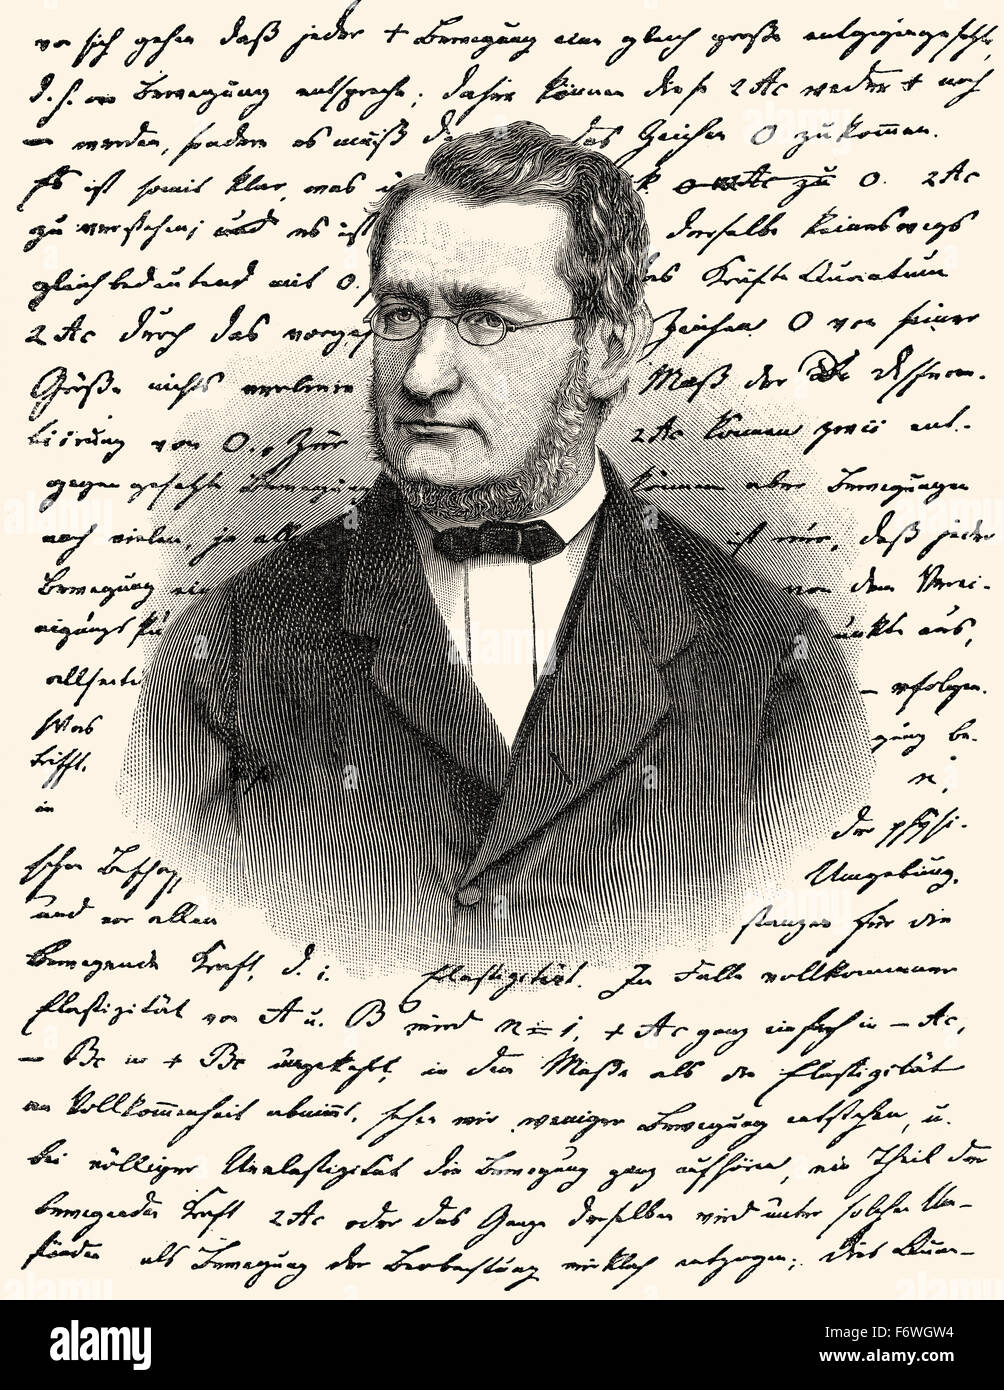 vor sich gehen daß jeder + Bewegung eine gleich große entgegengesetzte,
d. h. – Bewegung entspreche; daher können diese 2 Ac weder + noch
– werden, sondern es muß das Zeichen 0 zukommen.
Es ist somit klar, was zu 0. 2 Ac
zu verstehen; und es ist derselbe keineswegs
gleichbedeutend mit 0, das Kräfte Quantum
2 Ac durch das vorges Zeichen 0 von seiner
Größe nichts verliere Maß der Differen-
tiirung von 0. Zur 2 Ac können zwei ent-
gegen gesetzte Bewegun können aber Bewegungen
nach vielen, ja all ist nur, daß jede
Bewegung ein von dem Verei-
nigungs Pu unkte aus,
allseiti erfolgen.
Was gung be-
trifft, n,
in der physi-
schen Beschaf Umgebung,
und vor allen stanzen für die
bewegende Kraft, d. i. Elastizität. Im Falle vollkommener
Elastizität von A u. B wird n = 1, + Ac ganz einfach in – Ac,
– Bc in + Bc umgekehrt, in dem Maße als die Elastizität
an Vollkommenheit abnimmt, sehen wir weniger Bewegung entstehen, u.
bei völliger Unelastizität die Bewegung ganz aufhören, ein Theil der
bewegenden Kraft 2 Ac oder das Ganze derselben wird unter solchen Um-
ständen als Bewegung der Beobachtung wirklich entzogen; dies Quan-
alamy
Image ID: F6WGW4
www.alamy.com